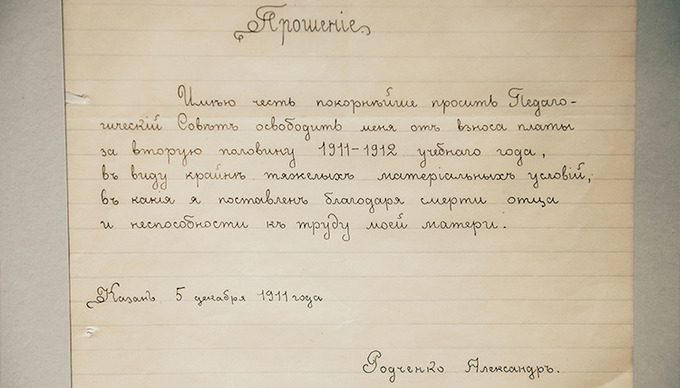 Прошеніе
Имѣю честь покорнѣйше просить Педаго-
гическій Совѣтъ освободить меня отъ взноса платы
за вторую половину 1911-1912 учебнаго года,
въ виду крайнѣ тяжелыхъ матеріальныхъ условій,
въ какія я поставленъ благодаря смерти отца
и неспособности къ труду моей матери.
Казань 5 декабря 1911 года
Родченко Александръ.